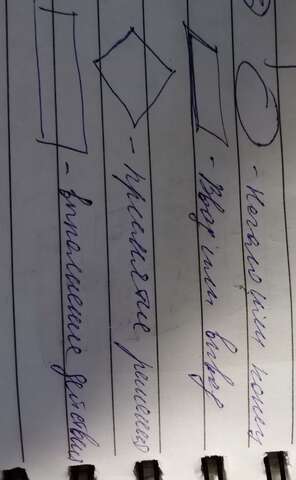 - Начало или конец
- Ввод или вывод
- принятие решения
- выполнение действия